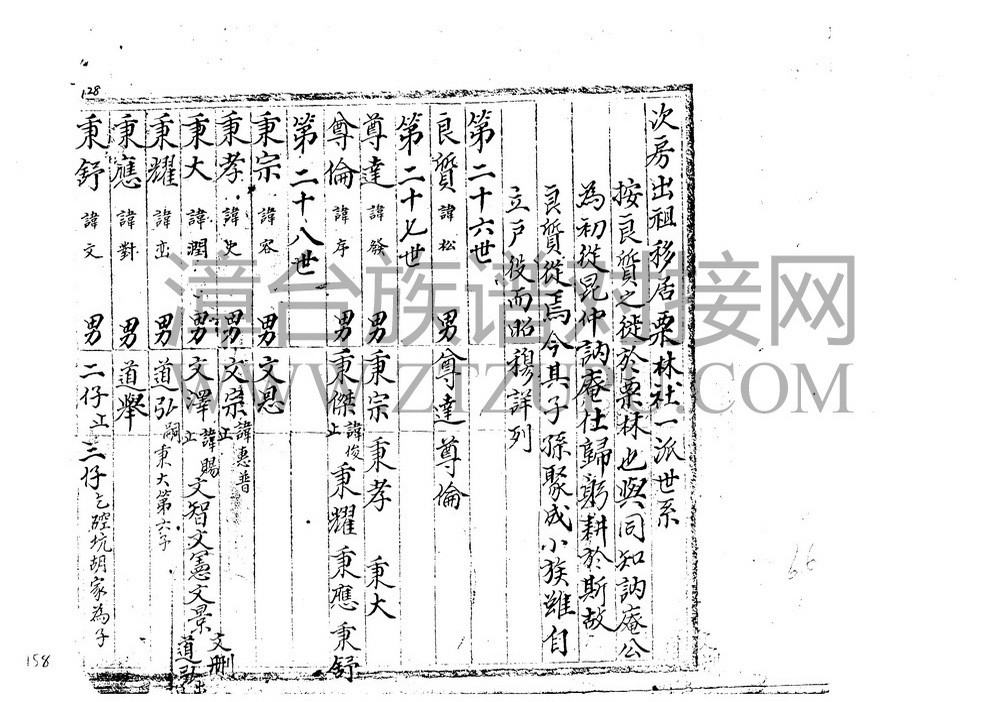 128
次房出祖移居粟林社一派世系
按良質之徙於粟林也與同知訥庵公
為初從昆仲訥庵仕歸躬耕於斯故
良質從焉今其子孫聚成小族雖自
立戶役而昭穆詳列
第二十六世
良質 諱松 男 尊達 尊倫
第二十七世
尊達 諱發 男 秉宗 秉孝 秉大
尊倫 諱存 男 秉傑 諱俊 止 秉耀 秉應 秉舒
第二十八世
秉宗 諱容 男 文思
秉孝 諱史 男 文宗 諱惠普 止
秉大 諱潤 男 文澤 諱賜 止 文智 文憲 文景 文刪 道弘 出
秉耀 諱 男 道弘 嗣秉大第六子
秉應 諱對 男 道舉
秉舒 諱文 男 二仔 止 三仔 乞磘坑胡家為子
漳台族谱对接网
WWW.ZTZUPU.COM
66
158